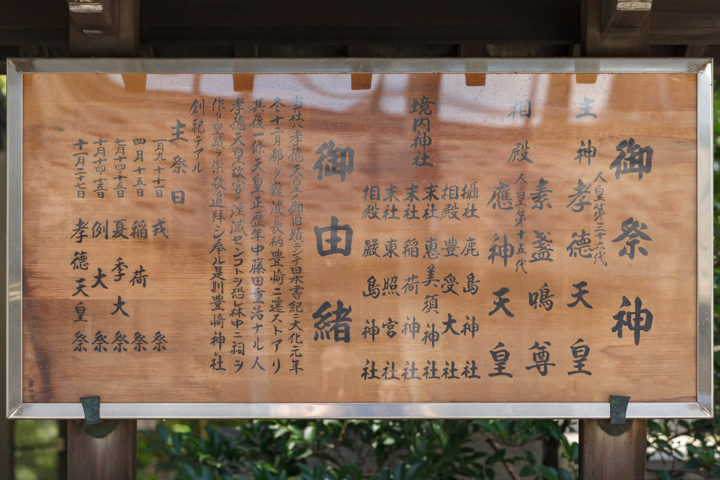 御祭神
人皇第三十六代
主神 孝德天皇
素盞鳴尊
人皇第十五代
相殿 應神天皇
境内神社
攝社 鹿島神社
相殿 豊受大神社
末社 恵美須神社
末社 稲荷神社
末社 東照宮社
相殿 嚴島神社
御由緒
当社ハ孝德天皇ノ御旧蹟ニシテ日本書紀ニ大化元年
冬十二月都ヲ難波長柄豊崎ニ遷ストアリ
其後一條天皇正歴年中藤田重治ナル人
孝德天皇故宮ノ湮滅センコトヲ恐レ林中ニ祠ヲ
作リ皇蹟ヲ崇敬追拜シ奉ル是則豊崎神社
創祀デアル
主祭日
一月九十十一日 戎祭
四月十五日 稲荷祭
七月十四十五日 夏季大祭
十月十四十五日 例大祭
十一月二十七日 孝德天皇祭